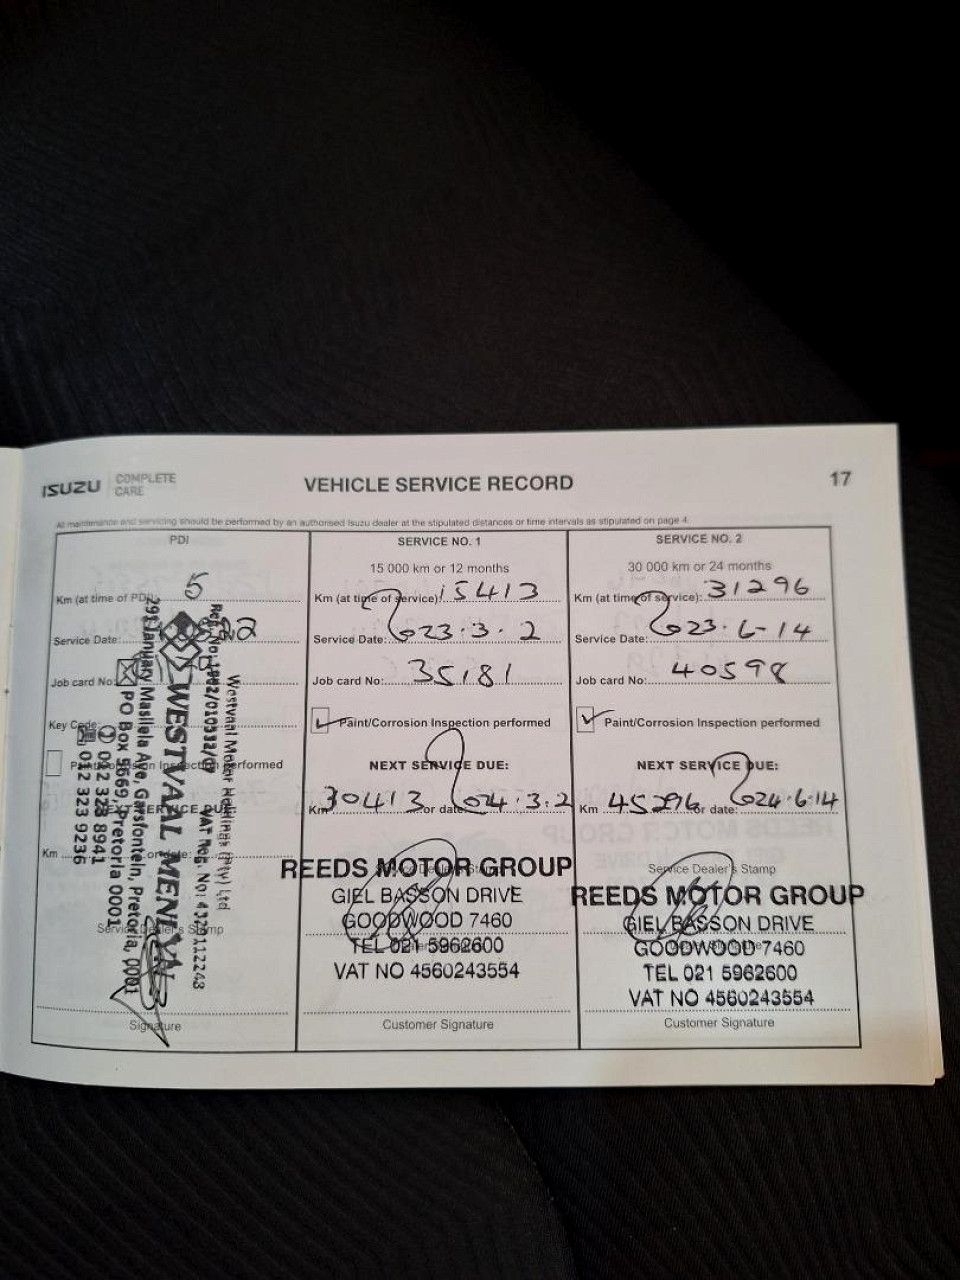 ISUZU COMPLETE CARE
VEHICLE SERVICE RECORD
17
All maintenance and servicing should be performed by an authorised Isuzu dealer at the stipulated distances or time intervals as stipulated on page 4.
PDI
Km (at time of PDI): 5
Service Date: 22
Job card No:
Key Code:
Paint/Corrosion Inspection performed
NEXT SERVICE DUE:
Km or date:
Service Dealer's Stamp
Signature
Westvaal Motor Holdings (Pty) Ltd
VAT Reg. No:
WESTVAAL MENLYN
Ave, Garsfontein, Pretoria, 0001
PO Box 5669, Pretoria 0001
012 323 8941
012 323 9236
SERVICE NO. 1
15 000 km or 12 months
Km (at time of service): 15413
Service Date: 2023.3.2
Job card No: 35181
Paint/Corrosion Inspection performed
NEXT SERVICE DUE:
Km 30413 or date: 2024.3.2
Service Dealer's Stamp
REEDS MOTOR GROUP
GIEL BASSON DRIVE
GOODWOOD 7460
TEL 021 5962600
VAT NO 4560243554
Customer Signature
SERVICE NO. 2
30 000 km or 24 months
Km (at time of service): 31296
Service Date: 2023.6-14
Job card No: 40598
Paint/Corrosion Inspection performed
NEXT SERVICE DUE:
Km 45296 or date: 2024.6.14
Service Dealer's Stamp
REEDS MOTOR GROUP
GIEL BASSON DRIVE
GOODWOOD 7460
TEL 021 5962600
VAT NO 4560243554
Customer Signature